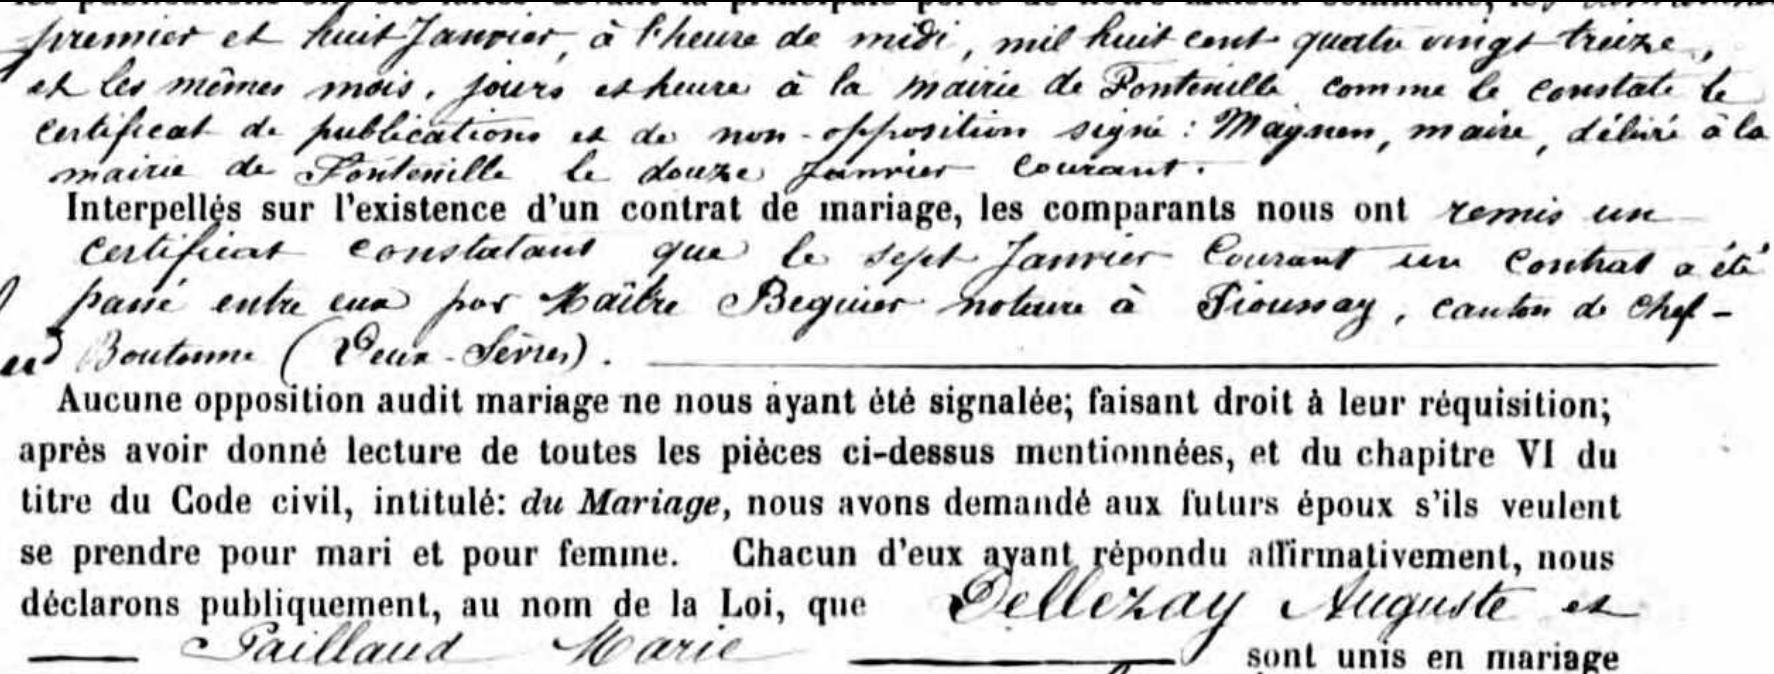 les publications ont été faites devant la principale porte de notre maison commune, les dimanches
premier et huit Janvier, à l'heure de midi, mil huit cent quatre vingt treize,
et les mêmes mois, jours et heure à la mairie de Fontenille comme le constate le
certificat de publications et de non-opposition signé : Magnen, maire, délivré à la
mairie de Fontenille le douze Janvier courant.
Interpellés sur l'existence d'un contrat de mariage, les comparants nous ont remis un
certificat constatant que le sept Janvier Courant un Contrat a été
passé entre eux par Maître Beguier notaire à Pioussay, canton de Chef-
Boutonne (Deux-Sèvres).
Aucune opposition audit mariage ne nous ayant été signalée; faisant droit à leur réquisition;
après avoir donné lecture de toutes les pièces ci-dessus mentionnées, et du chapitre VI du
titre du Code civil, intitulé: du Mariage, nous avons demandé aux futurs époux s'ils veulent
se prendre pour mari et pour femme. Chacun d'eux ayant répondu affirmativement, nous
déclarons publiquement, au nom de la Loi, que Dellezay Auguste et
Paillaud Marie sont unis en mariage